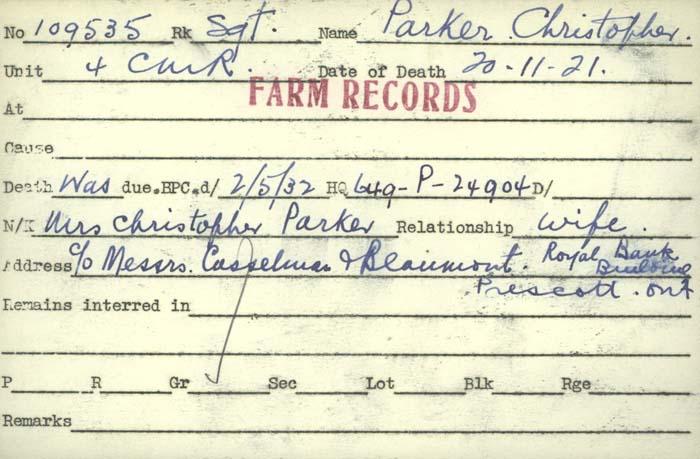 No 109535 Rk Sgt. Name Parker Christopher.
Unit 4 CMR. Date of Death 20-11-21.
FARM RECORDS
At
Cause
Death Was due.BPC.d/ 2/5/32 HQ 649-P-24904 D/
N/K Mrs Christopher Parker Relationship wife.
Address c/o Messrs. Casselman & Beaumont. Royal Bank
Building
Prescott. Ont
Remains interred in
P R Gr Sec Lot Blk Rge
Remarks